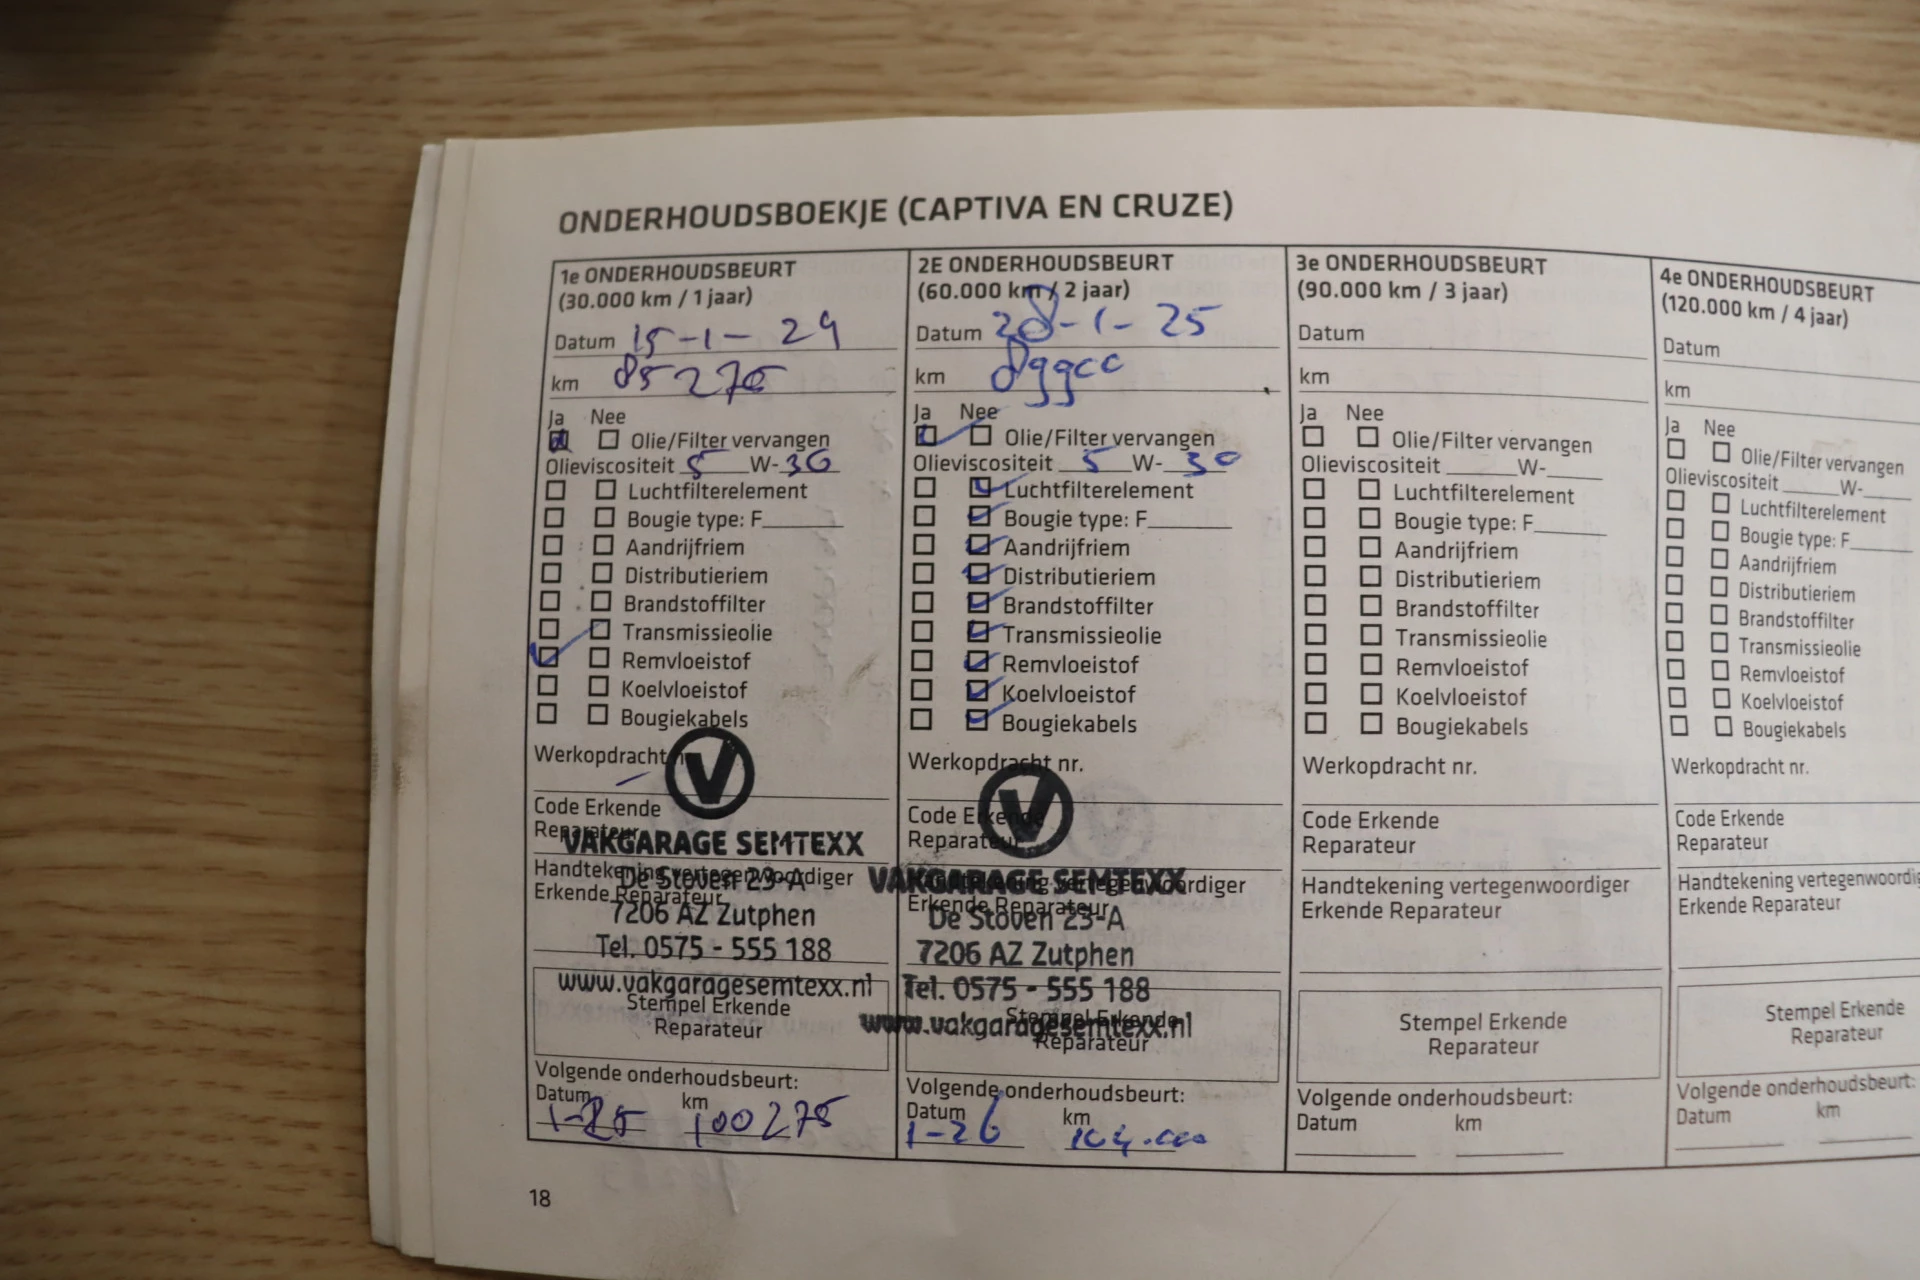 ONDERHOUDSBOEKJE (CAPTIVA EN CRUZE)
1e ONDERHOUDSBEURT
(30.000 km / 1 jaar)
Datum 15-1-24
km 85275
Ja Nee
Olie/Filter vervangen
Olieviscositeit 5 W-30
Luchtfilterelement
Bougie type: F
Aandrijfriem
Distributieriem
Brandstoffilter
Transmissieolie
Remvloeistof
Koelvloeistof
Bougiekabels
Werkopdracht
Code Erkende
Reparateur
VAKGARAGE SEMTEXX
Handtekening vertegenwoordiger
De Stoven 23-A
Erkende Reparateur
7206 AZ Zutphen
Tel. 0575 - 555 188
www.vakgaragesemtexx.nl
Stempel Erkende
Reparateur
Volgende onderhoudsbeurt:
Datum km
1-25 100275
2E ONDERHOUDSBEURT
(60.000 km / 2 jaar)
Datum 28-1-25
km
Ja Nee
Olie/Filter vervangen
Olieviscositeit 5 W-30
Luchtfilterelement
Bougie type: F
Aandrijfriem
Distributieriem
Brandstoffilter
Transmissieolie
Remvloeistof
Koelvloeistof
Bougiekabels
Werkopdracht nr.
Code Erkende
Reparateur
VAKGARAGE SEMTEXX
Handtekening vertegenwoordiger
Erkende Reparateur
De Stoven 23-A
7206 AZ Zutphen
Tel. 0575 - 555 188
Stempel Erkende
www.vakgaragesemtexx.nl
Reparateur
Volgende onderhoudsbeurt:
Datum km
1-26 104.000
3e ONDERHOUDSBEURT
(90.000 km / 3 jaar)
Datum
km
Ja Nee
Olie/Filter vervangen
Olieviscositeit W-
Luchtfilterelement
Bougie type: F
Aandrijfriem
Distributieriem
Brandstoffilter
Transmissieolie
Remvloeistof
Koelvloeistof
Bougiekabels
Werkopdracht nr.
Code Erkende
Reparateur
Handtekening vertegenwoordiger
Erkende Reparateur
Stempel Erkende
Reparateur
Volgende onderhoudsbeurt:
Datum km
4e ONDERHOUDSBEURT
(120.000 km / 4 jaar)
Datum
km
Ja Nee
Olie/Filter vervangen
Olieviscositeit W-
Luchtfilterelement
Bougie type: F
Aandrijfriem
Distributieriem
Brandstoffilter
Transmissieolie
Remvloeistof
Koelvloeistof
Bougiekabels
Werkopdracht nr.
Code Erkende
Reparateur
Handtekening vertegenwoordig
Erkende Reparateur
Stempel Erkende
Reparateur
Volgende onderhoudsbeurt:
Datum km
18